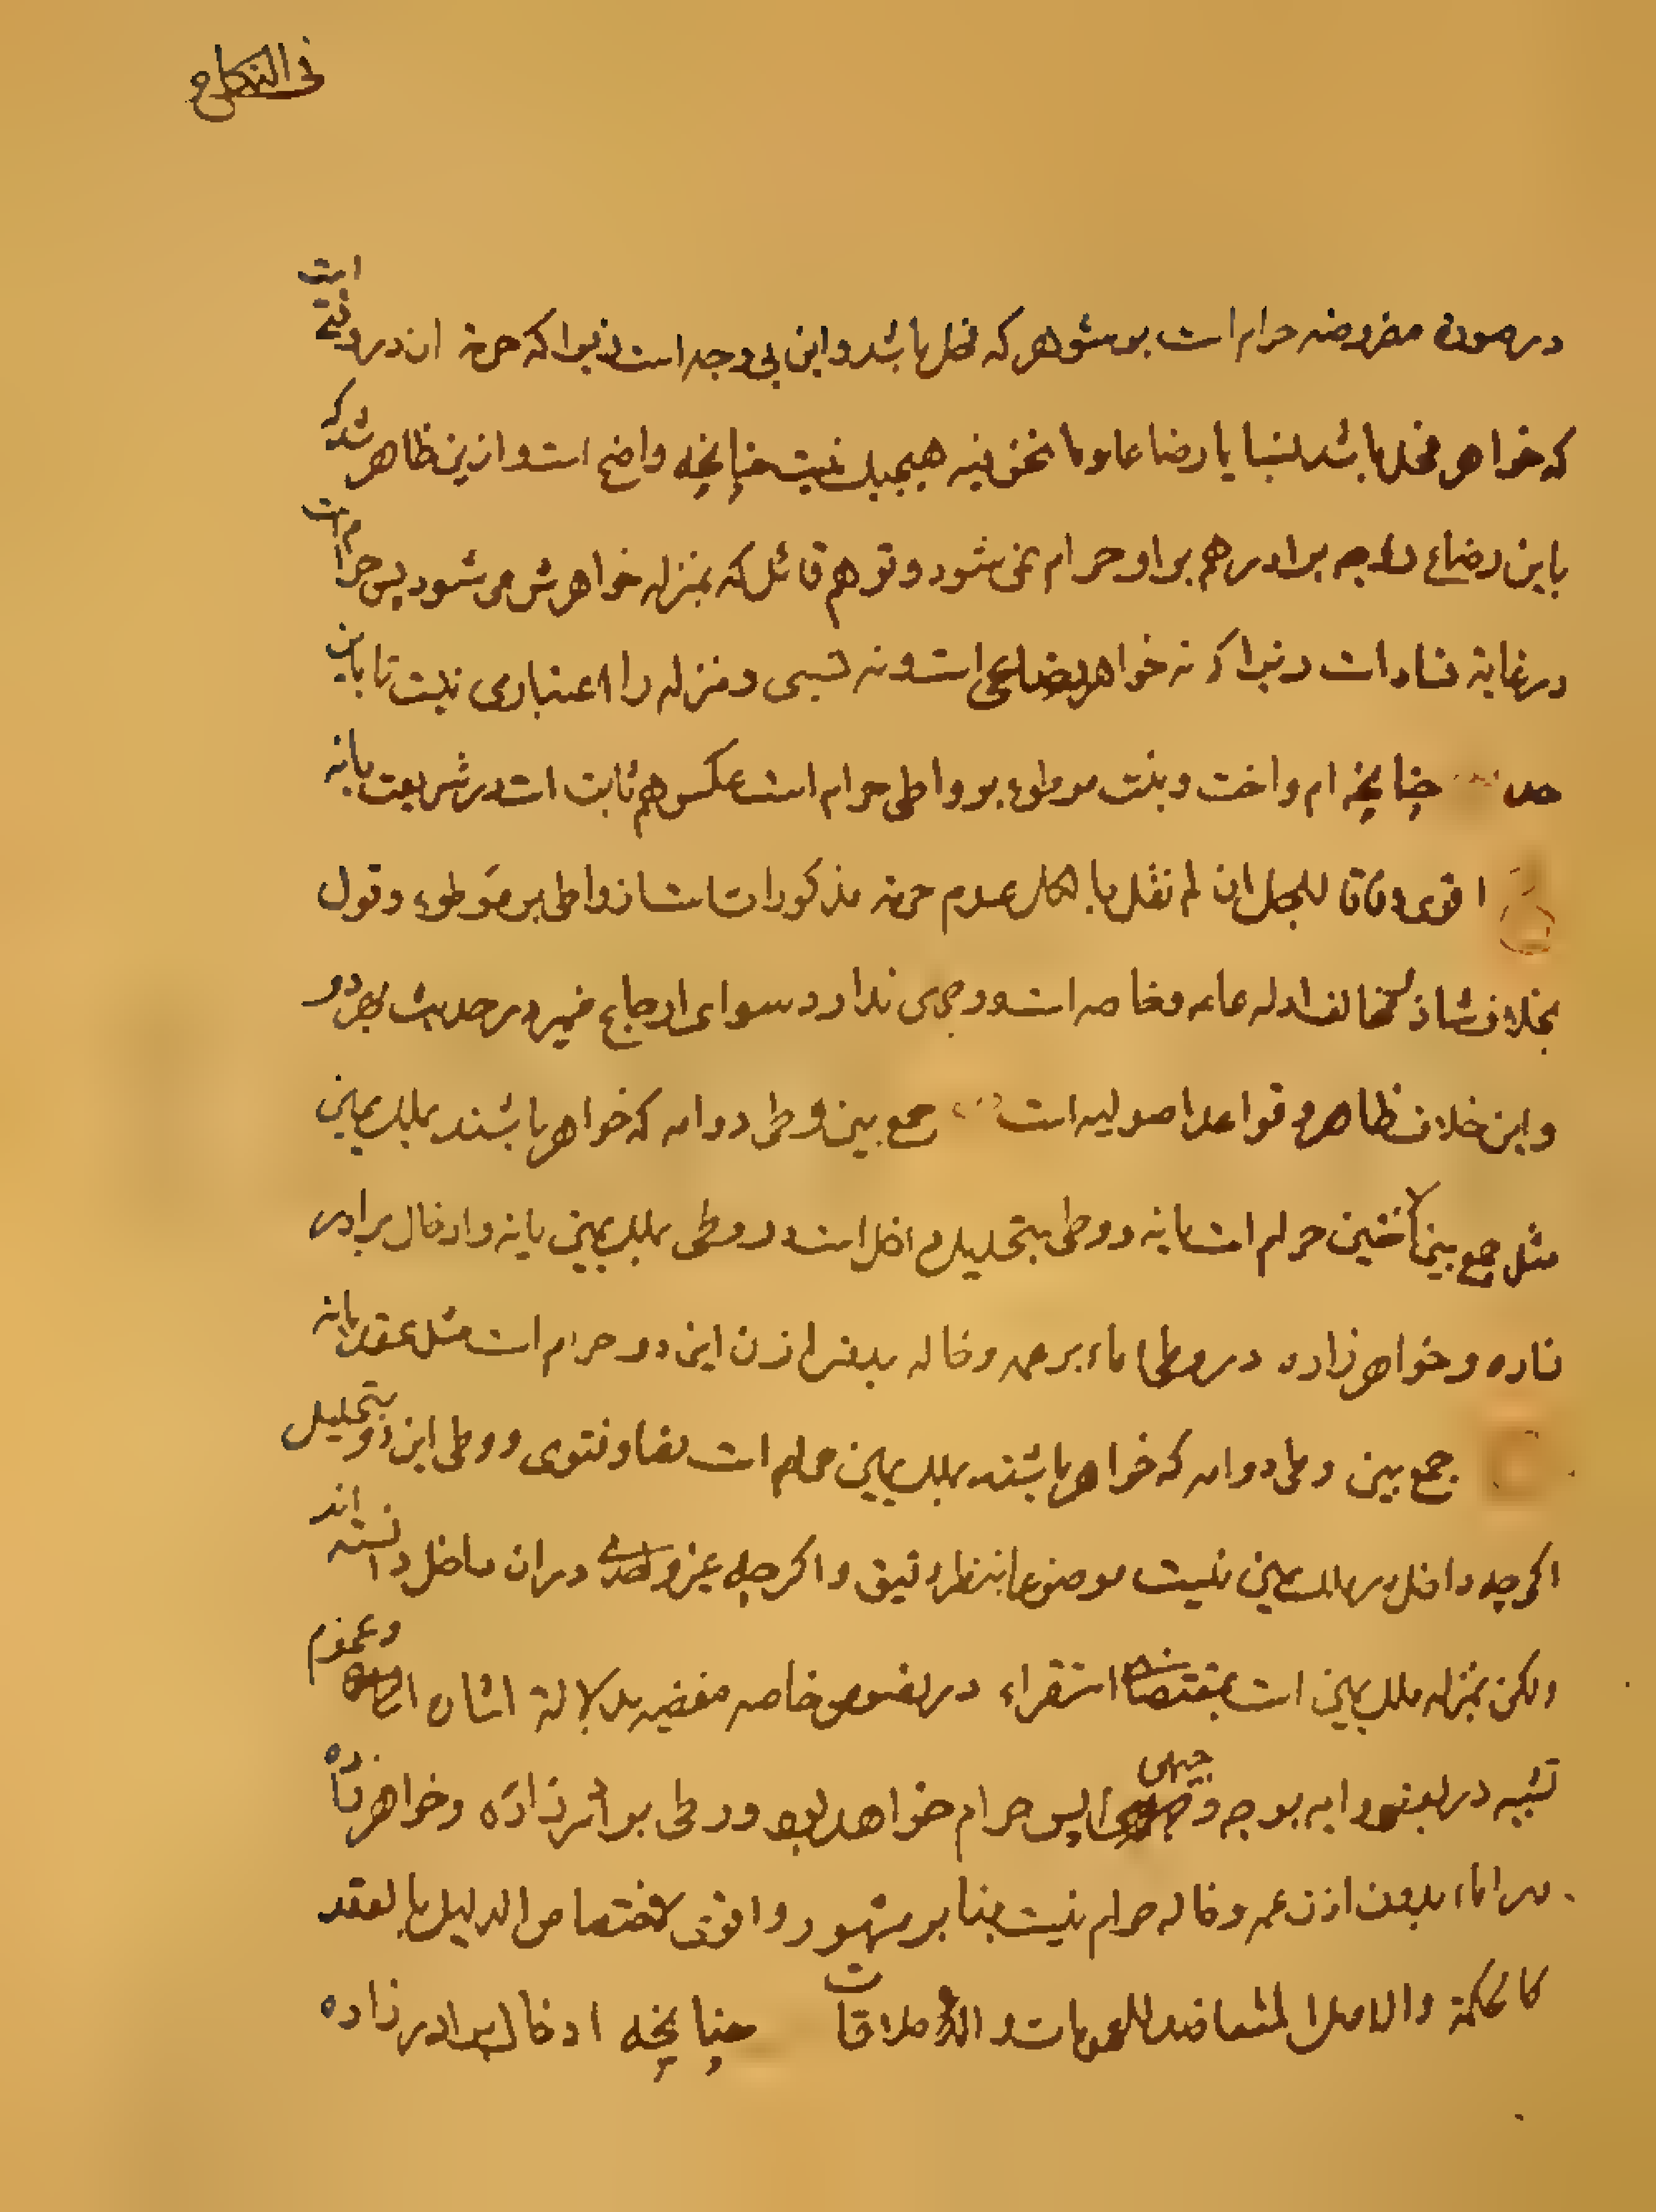 فی النکاح
در صورة مفروضه حرام است بر شوهر که فحل باشد و این بی وجه است زیرا که حرمة ان در وقتی است
که خواهر فحل باشد نسبا یا رضاعا و ما نحن فیه هیچیک نیست چنانچه واضح است و ازین ظاهر شد که
باین رضاع زوجه برادر هم بر او حرام نمی شود و توهم قائل که بمنزله خواهرش می شود پس حرام است
در غایة فساد است زیرا که نه خواهر رضاعی است و نه نسبی و منزله را اعتباری نیست تا باین
چنانچه ام و اخت و بنت موطوء بر واطی حرام است عکس هم ثابت است در شریعت یا نه
اقوی وفاقا للجل ان لم نقل بالکل عدم حرمة مذکورات است از واطی بر موطوء و قول
بخلاف شاذ مخالف ادله عامه و خاصه است و وجهی ندارد سوای ارجاع ضمیر در حدیث بهر دو
و این خلاف ظاهر و قواعد اصولیه است جمع بین وطی دو امه که خواهر باشند بملک یمین
مثل جمع بین الاختین حرام است یا نه و وطی بتحلیل داخل است در وطی بملک یمین یا نه و ادخال برادر
زاده و خواهر زاده در وطی اماء بر عمه و خاله بدون اذن این دو حرام است مثل عقد یا نه
جمع بین وطی دو امه که خواهر باشند بملک یمین حرام است نصا و فتوی و وطی این دو بتحلیل
اگرچه داخل در ملک یمین نیست موضوعا بنظر دقیق و اگرچه غیر واحدی در ان داخل دانسته اند
ولکن بمنزله ملک یمین است بمقتضا استقراء در نصوص خاصه مفضیه بدلالة اشاره و عموم
تشبیه در بعض روایه بوجه وجیهی پس حرام خواهد بود و وطی برادر زاده و خواهر زاده
در اماء بدون اذن عمه و خاله حرام نیست بنا بر مشهور و اقوی لاختصاص الدلیل بالعقد
کالحکمة والاصل المتعاضد للعمومات و الاطلاقات چنانچه ادخال برادر زاده